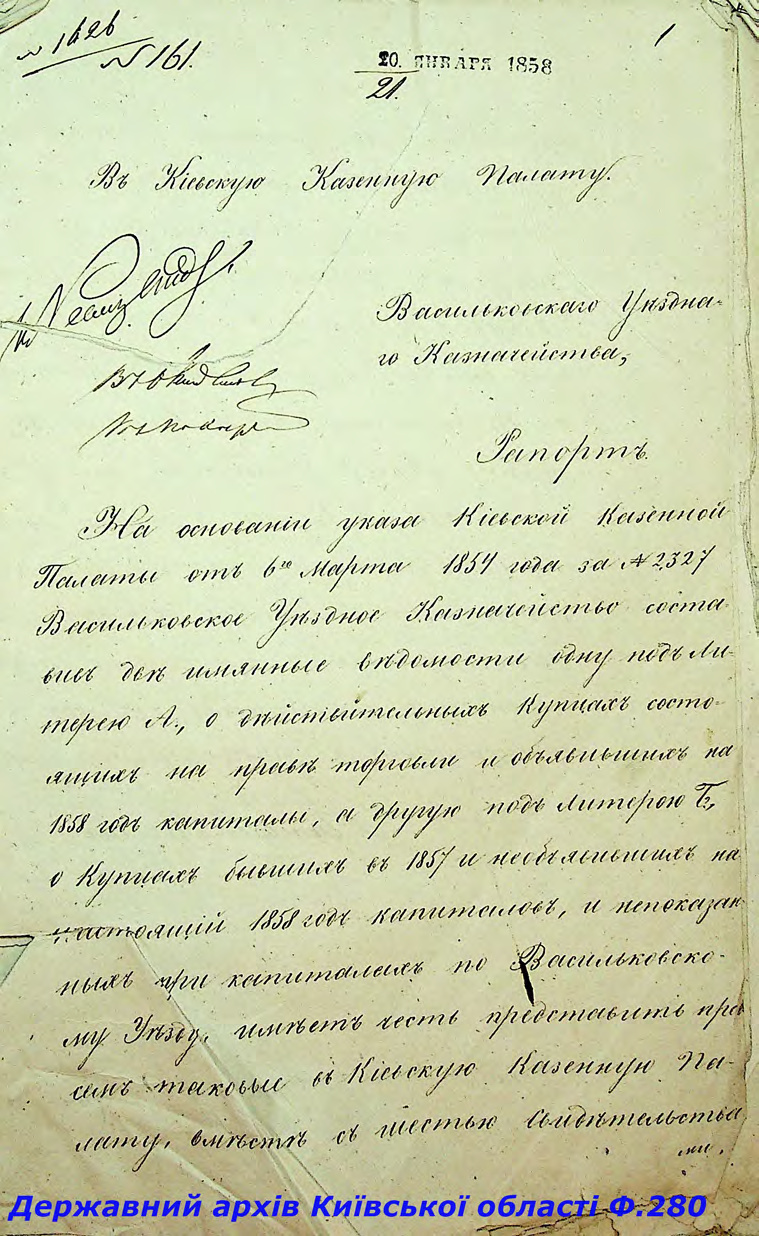 № 1626
№ 161.
1
20. ЯНВАРЯ 1858
21.
Въ Кіевскую Казенную Палату.
Васильковскаго Уѣздна-
го Казначейства,
Рапортъ.
На основаніи указа Кіевской Казенной
Палаты отъ 6го Марта 1854 года за № 2327
Васильковское Уѣздное Казначейство соста-
вивъ двѣ имянные вѣдомости одну подъ Ли-
терею А., о дѣйствительныхъ Купцахъ состо-
ящихъ на правѣ торговли и объявившихъ на
1858 годъ капиталы, а другую подъ Литерою Б.,
о Купцахъ бывшихъ въ 1857 и необъявившихъ на
настоящій 1858 годъ капиталовъ, и непоказан
ныхъ при капиталахъ по Васильковско-
му Уѣзду, имѣетъ честь представить при
семъ таковые въ Кіевскую Казенную Па-
лату, вмѣстѣ съ шестью Свидѣтельства
ми.
Державний архів Київської області Ф.280